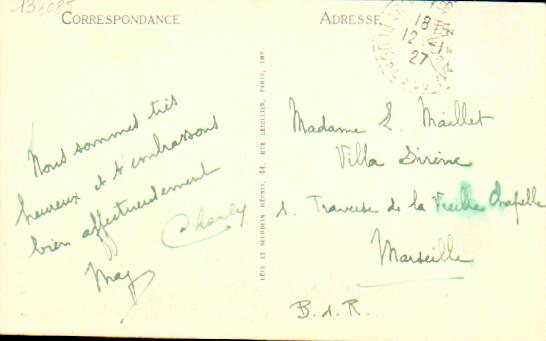 133085
CORRESPONDANCE
Nous sommes très
heureux et t'embrassons
bien affectueusement
Charly
May
LÉVY ET NEURDEIN RÉUNIS, 44, RUE LETELLIER, PARIS, IMP.
ADRESSE
18
12 - 1
27
Madame E. Maillet
Villa Sirène
1. Traverse de la Vieille Chapelle
Marseille
B. d. R.